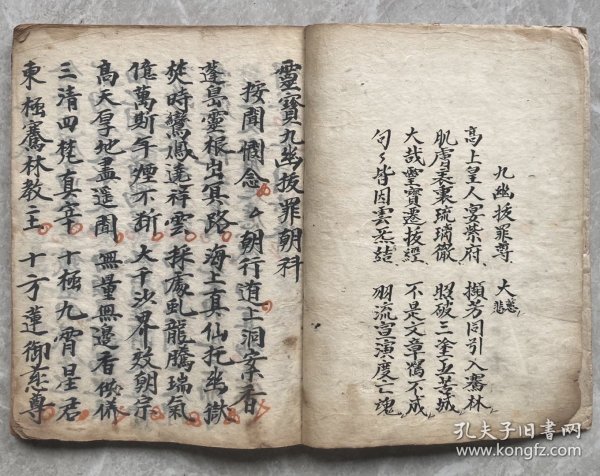 九幽拔罪尊 大慈悲
高上皇人宴紫府 擷芳同引入騫林
肌膚表裏琉璃徹 照破三塗五苦城
大哉靈寶還拔經 不是文章鶴不成
句々皆因雲炁結 羽流宣演度亡魂
靈寶九幽拔罪朝科
按聞懺念 々朝行道上洞案香
蓬島靈根出冥路 海上真仙托幽獄
焚時鸞鳳達祥雲 採處虬龍騰瑞氣
億萬斯年煙不斷 大千沙界效朝宗
高天厚地盡遥聞 無量無邊香供養
三清四梵真宰 十極九霄星君
東極騫林教主 十方蓮御慈尊
孔夫子旧书网
www.kongfz.com